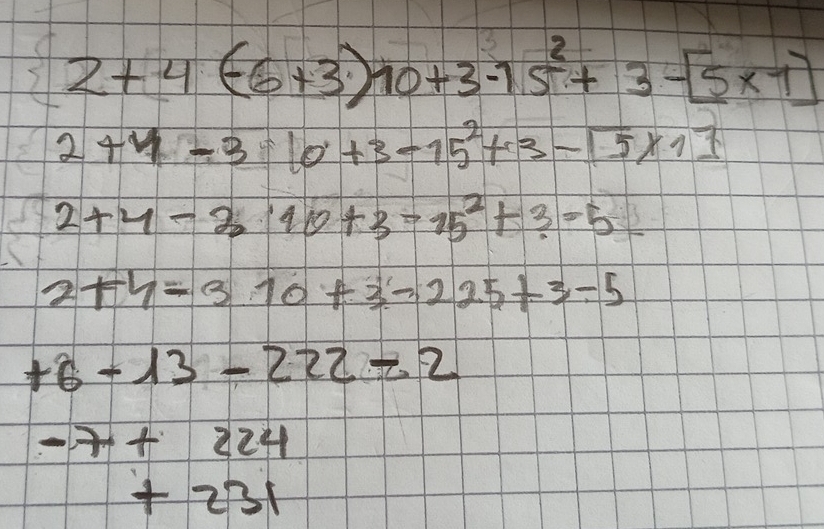 2+4 (-6+3)10+3-15²+ 3-[5×1]
2+4-3 10+3-15²+3-[5×1]
2+4-3 10+3-15²+3-5
2+4-3 10+3-225+3-5
+6-13-222-2
-7+ 224
+231